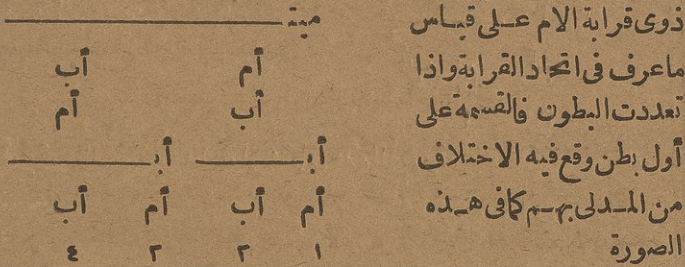 ذوى قرابة الام عـلى قيـاس
ماعرف فى اتحاد القرابة واذا
تعددت البطون فالقسمة على
أول بطن وقع فيه الاختلاف
من المـدلى بهـم كمافى هـذه
الصورة
ميتـ
أم أب
أب أم
أبـ أبـ
أم أب أم أب
١ ٢ ٢ ٤